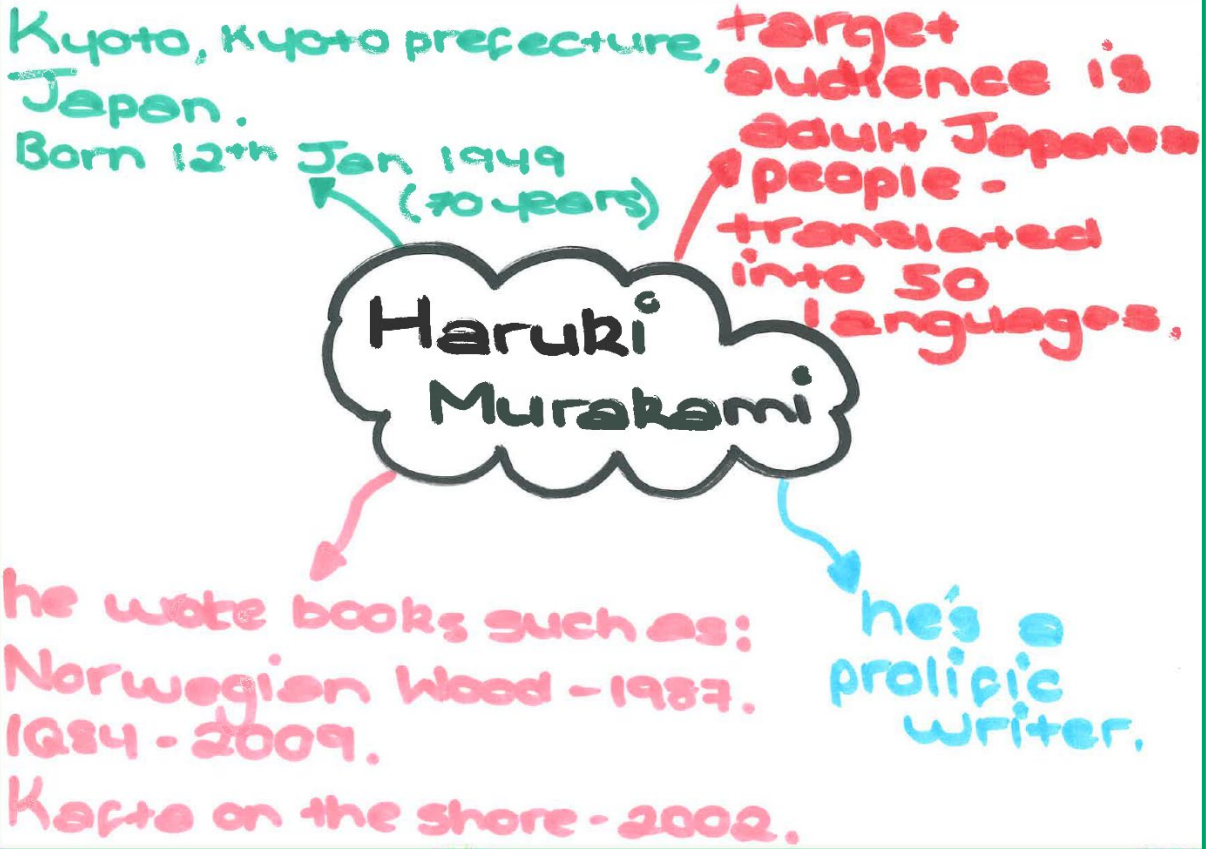 Kyoto, Kyoto prefecture,
Japan.
Born 12th Jan 1949
(70 years)
target
audience is
adult Japanese
people -
translated
into 50
languages.
Haruki
Murakami
he wote books such as:
Norwegian Wood - 1987.
1Q84 - 2009.
Kafta on the shore - 2002.
he's a
prolific
writer.